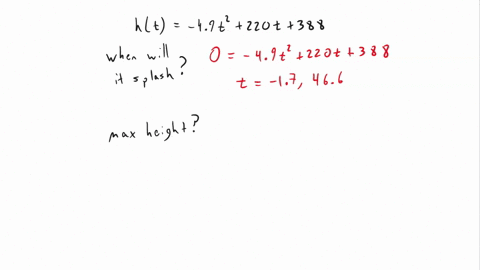 h(t) = -4.9t² + 220t + 388
when will it splash?
0 = -4.9t² + 220t + 388
t = -1.7, 46.6
max height?